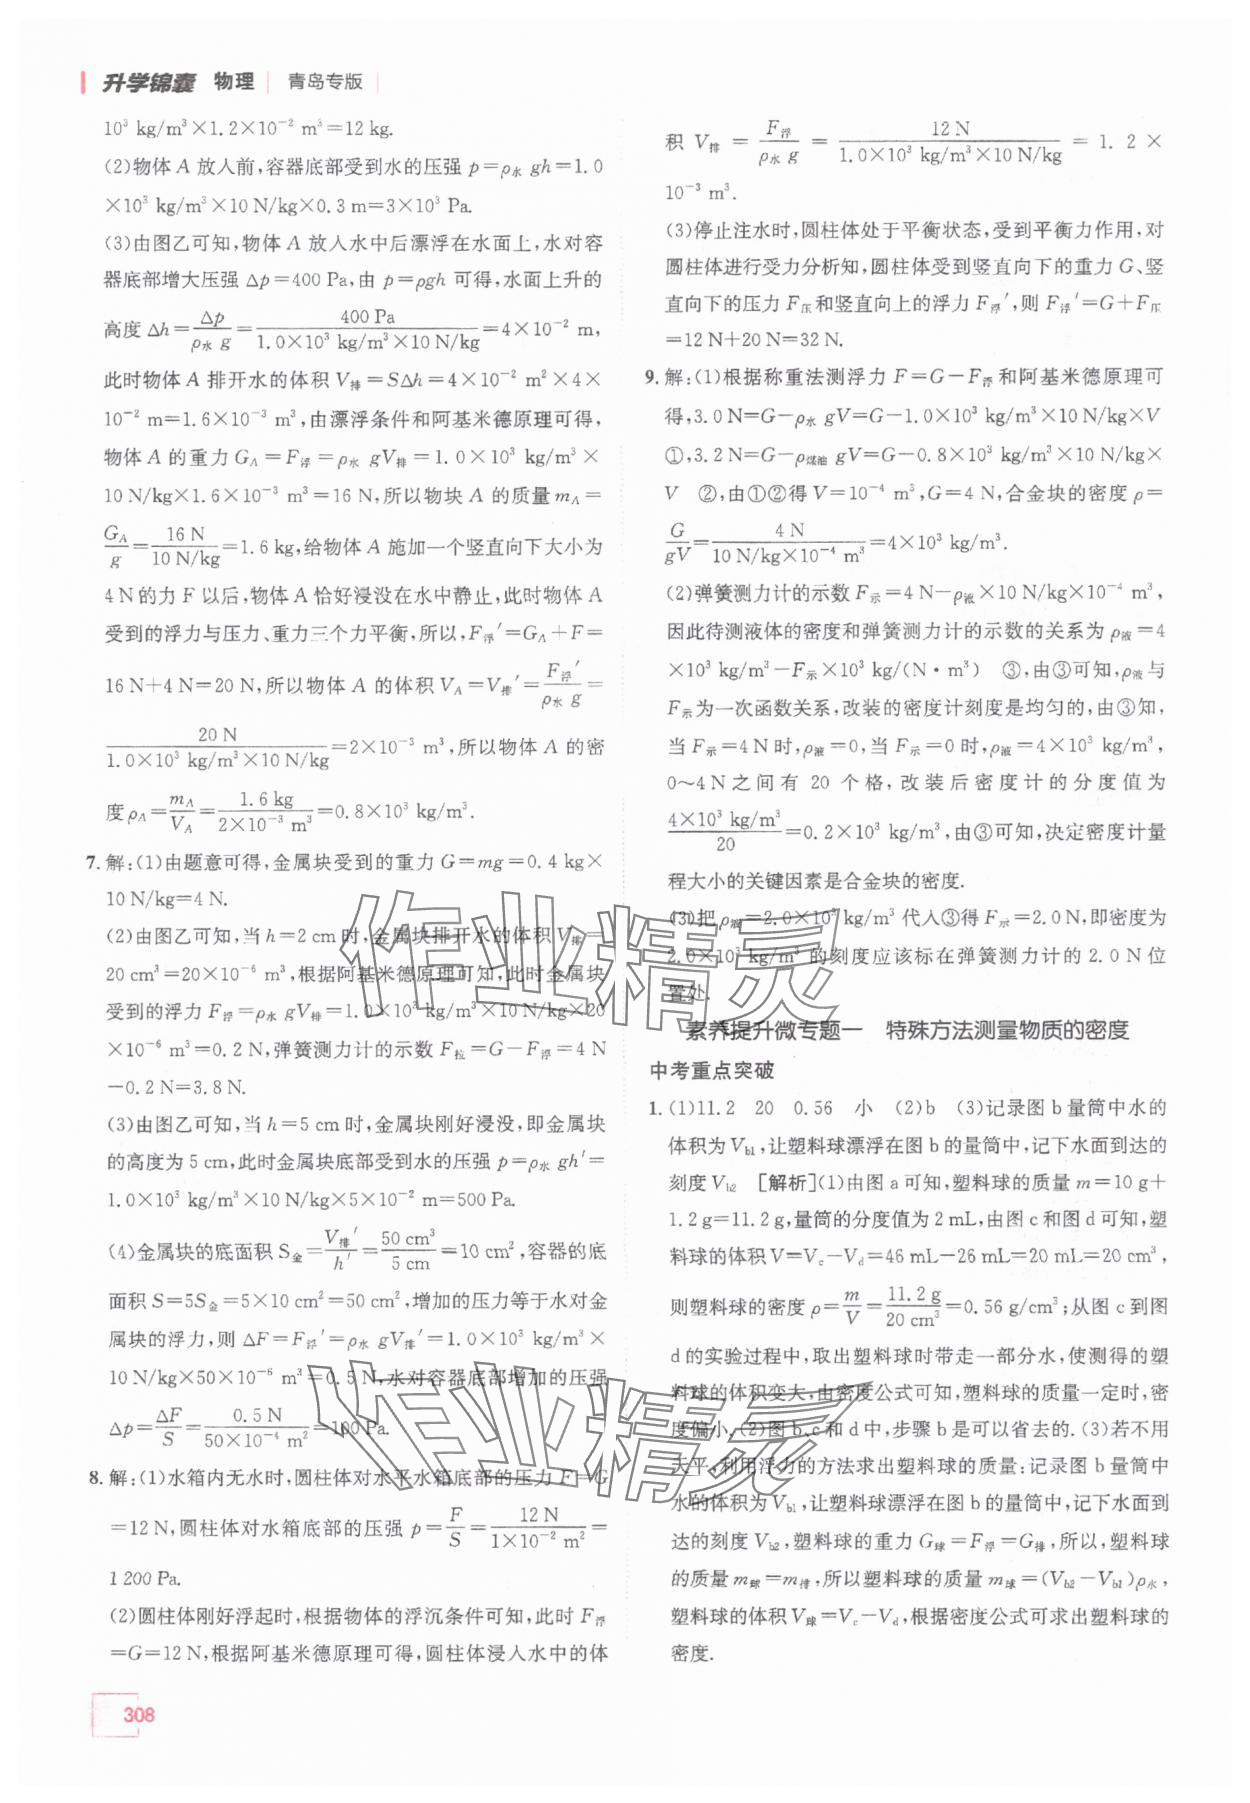 升学锦囊 物理 青岛专版
10³ kg/m³×1.2×10⁻² m³=12 kg.
(2)物体 A 放入前,容器底部受到水的压强 p=ρ水 gh=1.0
×10³ kg/m³×10 N/kg×0.3 m=3×10³ Pa.
(3)由图乙可知,物体 A 放入水中后漂浮在水面上,水对容
器底部增大压强 Δp=400 Pa,由 p=ρgh 可得,水面上升的
高度 Δh=Δp/(ρ水 g)=400 Pa/(1.0×10³ kg/m³×10 N/kg)=4×10⁻² m,
此时物体 A 排开水的体积 V排=SΔh=4×10⁻² m²×4×
10⁻² m=1.6×10⁻³ m³,由漂浮条件和阿基米德原理可得,
物体 A 的重力 G_A=F浮=ρ水 gV排=1.0×10³ kg/m³×
10 N/kg×1.6×10⁻³ m³=16 N,所以物块 A 的质量 m_A=
G_A/g=16 N/(10 N/kg)=1.6 kg,给物体 A 施加一个竖直向下大小为
4 N的力 F 以后,物体 A 恰好浸没在水中静止,此时物体 A
受到的浮力与压力、重力三个力平衡,所以,F浮′=G_A+F=
16 N+4 N=20 N,所以物体 A 的体积 V_A=V排′=F浮′/(ρ水 g)=
20 N/(1.0×10³ kg/m³×10 N/kg)=2×10⁻³ m³,所以物体 A 的密
度 ρ_A=m_A/V_A=1.6 kg/(2×10⁻³ m³)=0.8×10³ kg/m³.
7. 解:(1)由题意可得,金属块受到的重力 G=mg=0.4 kg×
10 N/kg=4 N.
(2)由图乙可知,当 h=2 cm时,金属块排开水的体积 V排=
20 cm³=20×10⁻⁶ m³,根据阿基米德原理可知,此时金属块
受到的浮力 F浮=ρ水 gV排=1.0×10³ kg/m³×10 N/kg×20
×10⁻⁶ m³=0.2 N,弹簧测力计的示数 F拉=G−F浮=4 N
−0.2 N=3.8 N.
(3)由图乙可知,当 h=5 cm时,金属块刚好浸没,即金属块
的高度为 5 cm,此时金属块底部受到水的压强 p=ρ水 gh′=
1.0×10³ kg/m³×10 N/kg×5×10⁻² m=500 Pa.
(4)金属块的底面积 S金=V排′/h′=50 cm³/5 cm=10 cm²,容器的底
面积 S=5S金=5×10 cm²=50 cm²,增加的压力等于水对金
属块的浮力,则 ΔF=F浮′=ρ水 gV排′=1.0×10³ kg/m³×
10 N/kg×50×10⁻⁶ m³=0.5 N,水对容器底部增加的压强
Δp=ΔF/S=0.5 N/(50×10⁻⁴ m²)=100 Pa.
8. 解:(1)水箱内无水时,圆柱体对水平水箱底部的压力 F=G
=12 N,圆柱体对水箱底部的压强 p=F/S=12 N/(1×10⁻² m²)=
1 200 Pa.
(2)圆柱体刚好浮起时,根据物体的浮沉条件可知,此时 F浮
=G=12 N,根据阿基米德原理可得,圆柱体浸入水中的体
积 V排 = F浮/(ρ水 g) = 12 N/(1.0×10³ kg/m³×10 N/kg) = 1.2 ×
10⁻³ m³.
(3)停止注水时,圆柱体处于平衡状态,受到平衡力作用,对
圆柱体进行受力分析知,圆柱体受到竖直向下的重力 G、竖
直向下的压力 F压和竖直向上的浮力 F浮′,则 F浮′=G+F压
=12 N+20 N=32 N.
9. 解:(1)根据称重法测浮力 F=G−F浮和阿基米德原理可
得,3.0 N=G−ρ水 gV=G−1.0×10³ kg/m³×10 N/kg×V
①,3.2 N=G−ρ煤油 gV=G−0.8×10³ kg/m³×10 N/kg×
V ②,由①②得 V=10⁻⁴ m³,G=4 N,合金块的密度 ρ=
G/gV=4 N/(10 N/kg×10⁻⁴ m³)=4×10³ kg/m³.
(2)弹簧测力计的示数 F示=4 N−ρ液×10 N/kg×10⁻⁴ m³,
因此待测液体的密度和弹簧测力计的示数的关系为 ρ液=4
×10³ kg/m³−F示×10³ kg/(N·m³) ③,由③可知,ρ液与
F示为一次函数关系,改装的密度计刻度是均匀的,由③知,
当 F示=4 N时,ρ液=0,当 F示=0 时,ρ液=4×10³ kg/m³,
0～4 N 之间有 20 个格,改装后密度计的分度值为
4×10³ kg/m³/20=0.2×10³ kg/m³,由③可知,决定密度计量
程大小的关键因素是合金块的密度.
(3)把 ρ液=2.0×10³ kg/m³ 代入③得 F示=2.0 N,即密度为
2.0×10³ kg/m³ 的刻度应该标在弹簧测力计的 2.0 N 位
置处.
素养提升微专题一 特殊方法测量物质的密度
中考重点突破
1. (1)11.2 20 0.56 小 (2)b (3)记录图 b 量筒中水的
体积为 Vb1,让塑料球漂浮在图 b 的量筒中,记下水面到达的
刻度 Vb2 [解析](1)由图 a 可知,塑料球的质量 m=10 g+
1.2 g=11.2 g,量筒的分度值为 2 mL,由图 c 和图 d 可知,塑
料球的体积 V=Vc−Vd=46 mL−26 mL=20 mL=20 cm³,
则塑料球的密度 ρ=m/V=11.2 g/20 cm³=0.56 g/cm³;从图 c 到图
d 的实验过程中,取出塑料球时带走一部分水,使测得的塑
料球的体积变大,由密度公式可知,塑料球的质量一定时,密
度偏小.(2)图 b、c 和 d 中,步骤 b 是可以省去的.(3)若不用
天平,利用浮力的方法求出塑料球的质量:记录图 b 量筒中
水的体积为 Vb1,让塑料球漂浮在图 b 的量筒中,记下水面到
达的刻度 Vb2,塑料球的重力 G球=F浮=G排,所以,塑料球
的质量 m球=m排,所以塑料球的质量 m球=(Vb2−Vb1)ρ水,
塑料球的体积 V球=Vc−Vd,根据密度公式可求出塑料球的
密度.
作业精灵
作业精灵
308